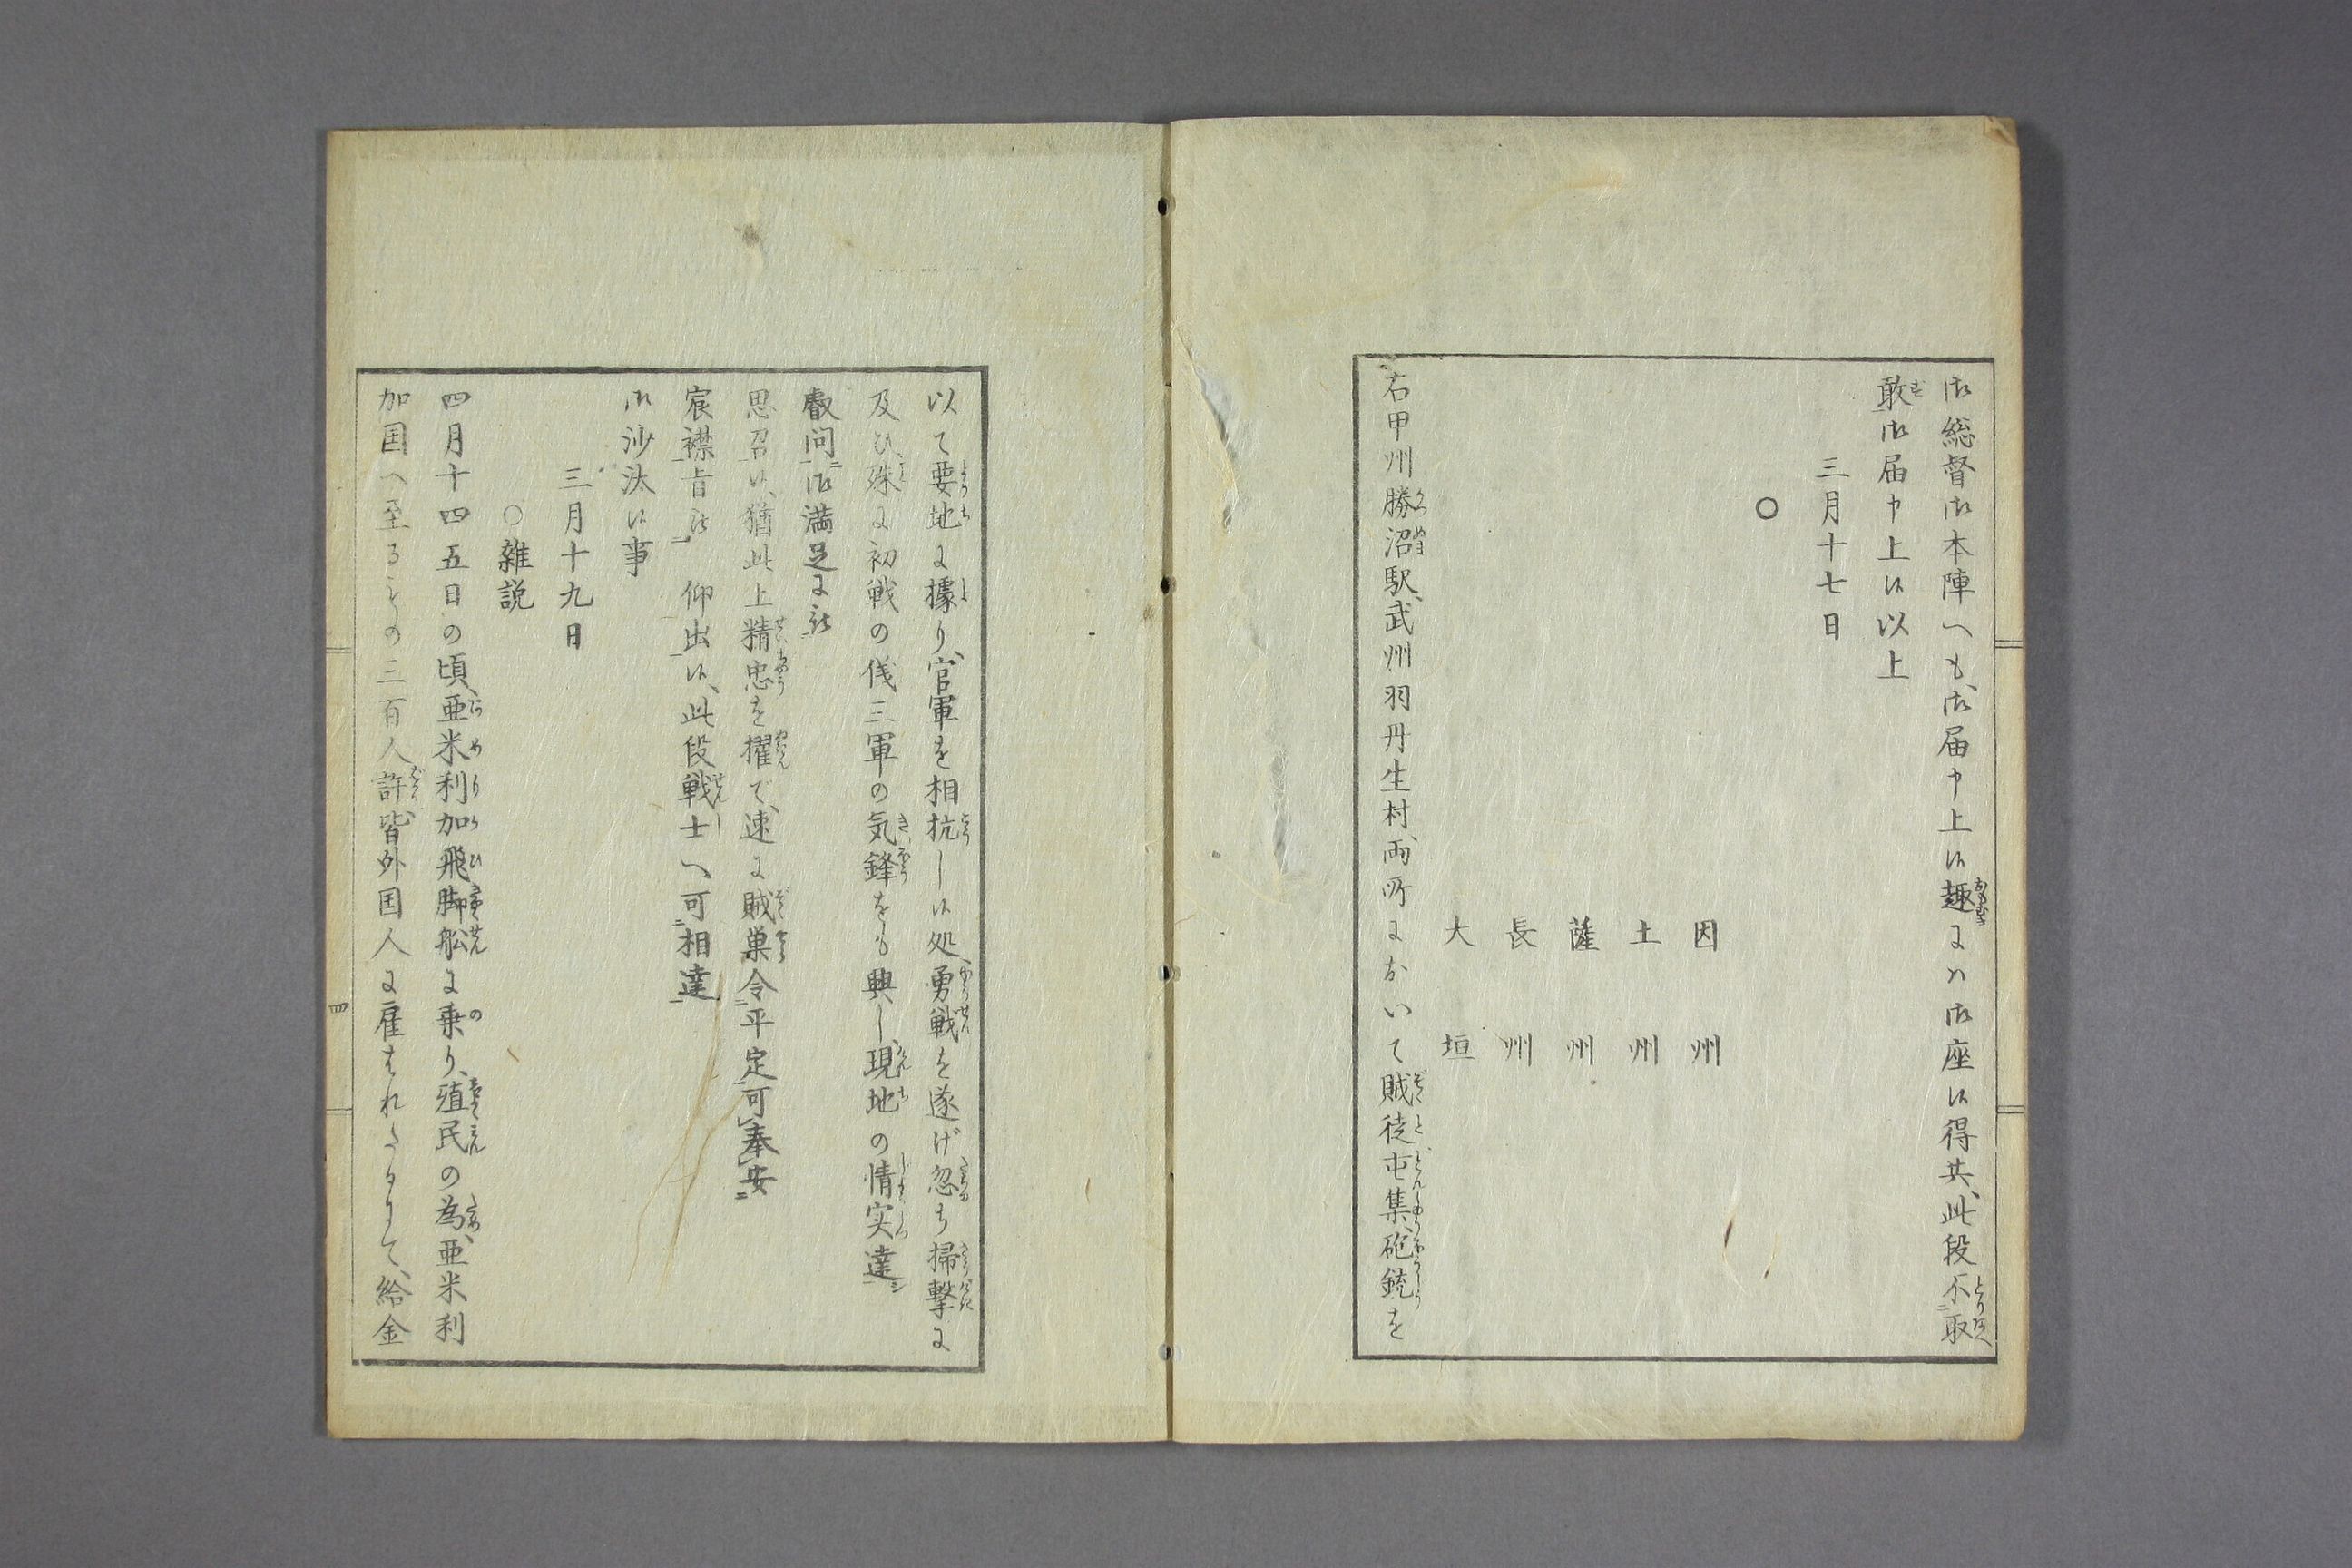 御総督御本陣へも、御届申上候趣に八御座候得共、此段不取
敢御届申上候以上
三月十七日
○
因州
土州
薩州
長州
大垣
右甲州勝沼駅、武州羽丹生村、両所において賊徒屯集、砲銃を
以て要地に據り、官軍を相抗し候処、勇戦を遂げ忽ち掃撃に
及ひ、殊に初戦の儀三軍の気鋒をも興し、現地の情実達
叡問御満足に被
思召候、猶此上精忠を擢で、速に賊巣令平定可奉安
宸襟旨被 仰出候、此段戦士へ可相達
御沙汰候事
三月十九日
○雑説
四月十四五日の頃、亜米利加飛脚舩に乗り、殖民の為、亜米利
加国へ至るもの三百人許、皆外国人に雇はれたるにて、給金
四